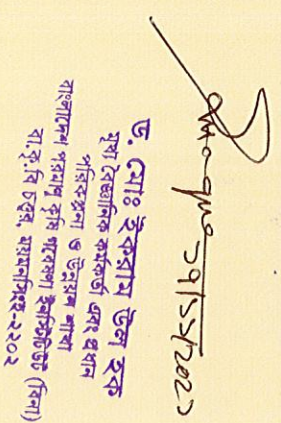 ১৭/১১/২০২১
ড. মোঃ ইকরাম উল হক
মুখ্য বৈজ্ঞানিক কর্মকর্তা এবং প্রধান
পরিকল্পনা ও উন্নয়ন শাখা
বাংলাদেশ পরমাণু কৃষি গবেষণা ইনস্টিটিউট (বিনা)
বা.কৃ.বি চত্বর, ময়মনসিংহ-২২০২